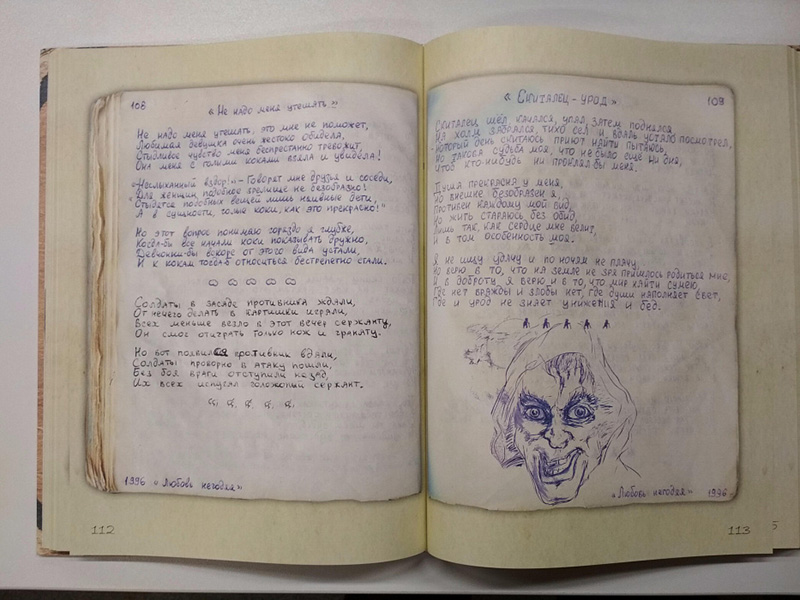 108
« Не надо меня утешать »
Не надо меня утешать, это мне не поможет,
Любимая девушка очень жестоко обидела,
Стыдливое чувство меня беспрестанно тревожит,
Она меня с голыми коками взяла и увидела!
«Неслыханный вздор!» – Говорят мне друзья и соседи,
Для женщин подобное зрелище не безобразно!
Стыдятся подобных вещей лишь наивные дети,
А в сущности, голые коки, как это прекрасно!"
Но этот вопрос понимаю гораздо я глубже,
Когда-бы все начали коки показывать дружно,
Девчонки-бы вскоре от этого вида устали,
И к кокам тогда-б относиться бестрепетно стали.
Солдаты в засаде противника ждали,
От нечего делать в картишки играли,
Всех меньше везло в этот вечер сержанту,
Он смог отыграть только нож и гранату.
Но вот появился противник вдали,
Солдаты проворно в атаку пошли,
Без боя враги отступили назад,
Их всех испугал голожопый сержант.
1996 « Любовь негодяя»
112
« Скиталец - урод »
109
Скиталец шёл качался, упал, затем поднялся
На холм забрался, тихо сел и вдаль устало посмотрел,
Который день скитаюсь приют найти пытаюсь,
Но такова судьба моя, что не было ещё ни дня,
Чтоб кто-нибудь не проклял бы меня.
Душа прекрасна у меня,
Но внешне безобразен я,
Противен каждому мой вид,
Но жить стараюсь без обид,
Лишь так, как сердце мне велит,
И в том особенность моя.
Я не ищу удачу и по ночам не плачу,
Но верю в то, что на земле не зря пришлось родиться мне,
И в доброту я верю и в то, что мир найти сумею,
Где нет вражды и злобы нет, где души наполняет свет,
Где и урод не знает унижения и бед.
«Любовь негодяя» 1996
113
5